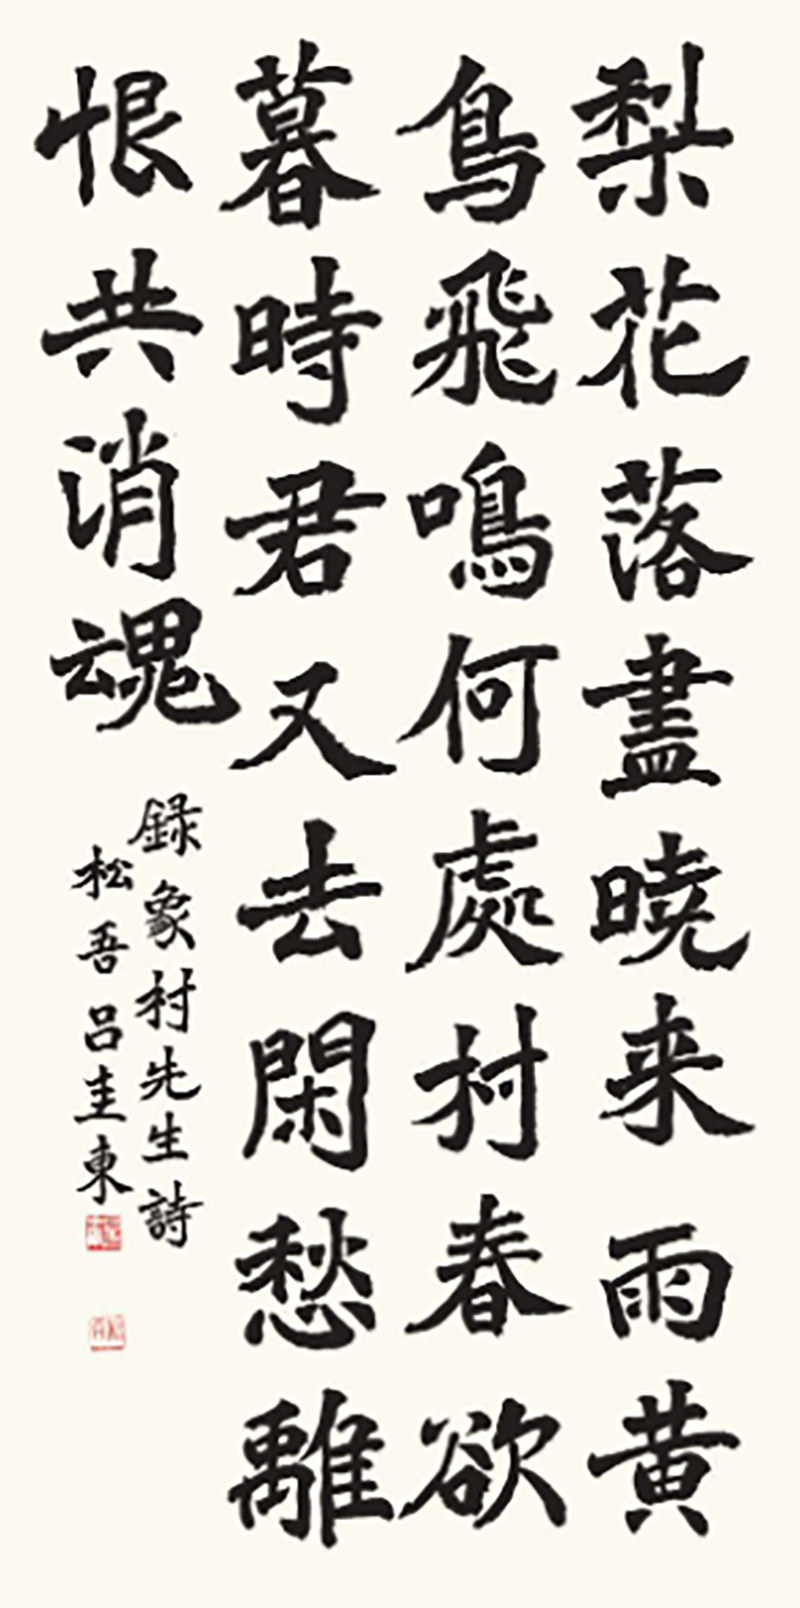 梨花落盡曉来雨黄
鳥飛鳴何處村春欲
暮時君又去閑愁離
恨共消魂
録象村先生詩
松吾呂圭東